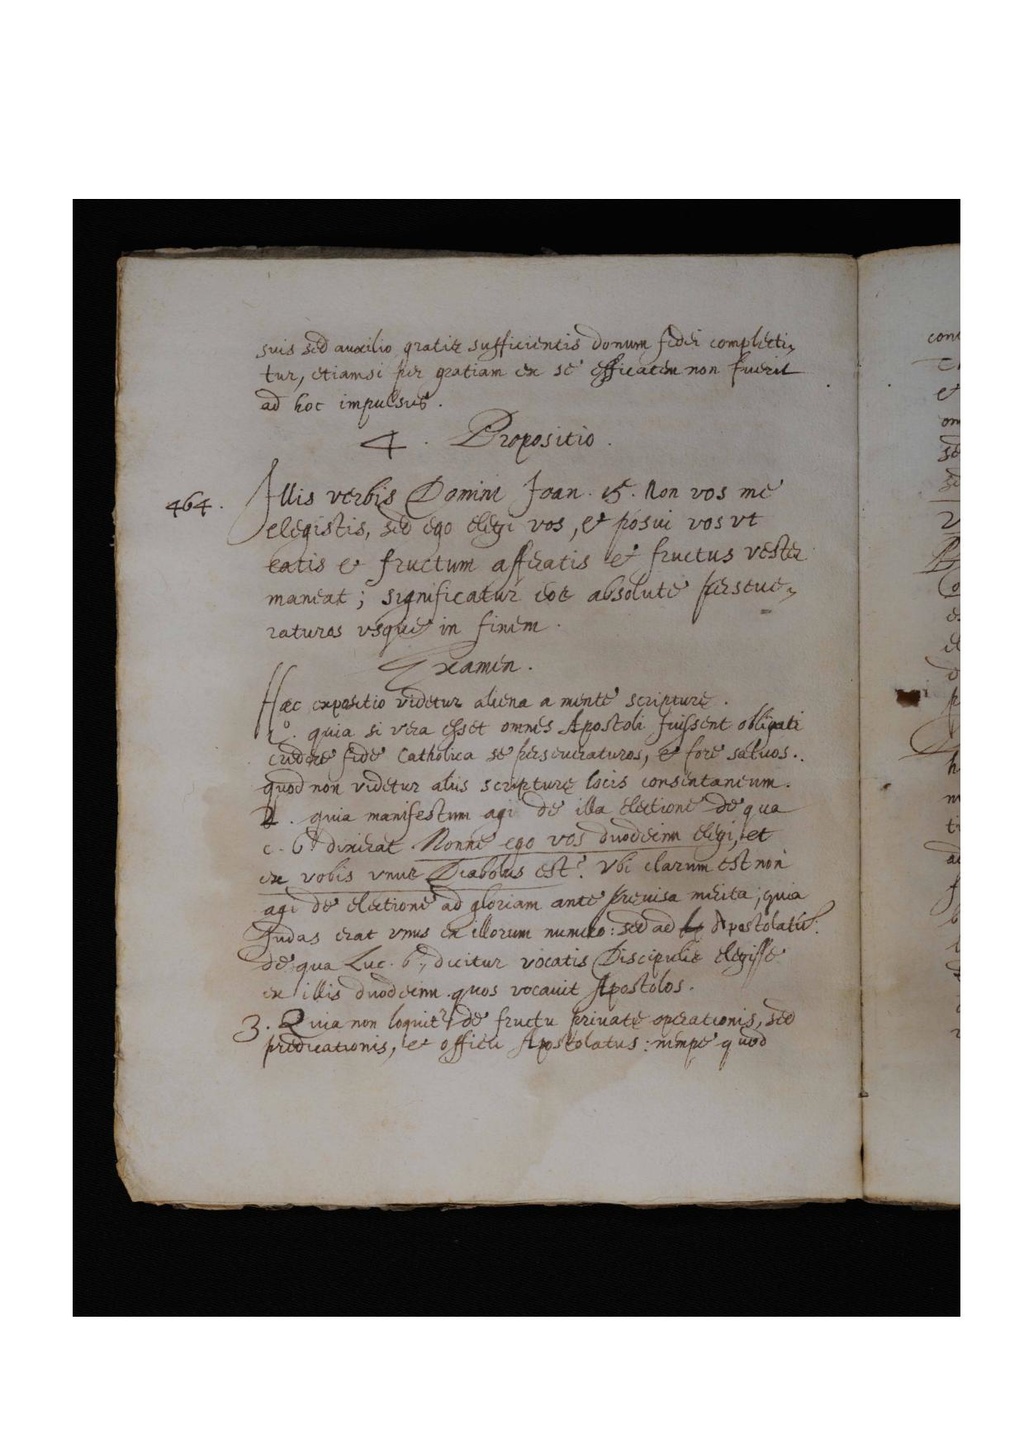 suis sed auxilio gratiæ sufficientis donum fidei complecti-
tur, etiamsi per gratiam ex se efficatem non fuerit
ad hoc impulsus.
4. Propositio.
464. Illis verbis Domini Joan. 15. Non vos me
elegistis, sed ego elegi vos, et posui vos vt
eatis et fructum afferatis et fructus vester
maneat; significatur eos absolute perseue-
raturos vsque in finem.
Examen.
Hæc expositio videtur aliena a mente scripturę.
1º. quia si vera esset omnes Apostoli fuissent obligati
credere fide Catholica se perseueraturos, et fore saluos.
quod non videtur aliis scripturę locis consentaneum.
2. quia manifestum agi de illa electione de qua
c. 6º dixerat Nonne ego vos duodecim elegi, et
ex vobis vnus Diabolus est? Vbi clarum est non
agi de electione ad gloriam ante preuisa merita; quia
Judas erat vnus ex illorum numero: sed ad Apostolatū.
de qua Luc. 6., dicitur vocatis Discipulis elegisse
ex illis duodecim quos vocauit Apostolos.
3. Quia non loquitr de fructu priuatę operationis, sed
prędicationis, et officii Apostolatus: nimpe quod
con
et